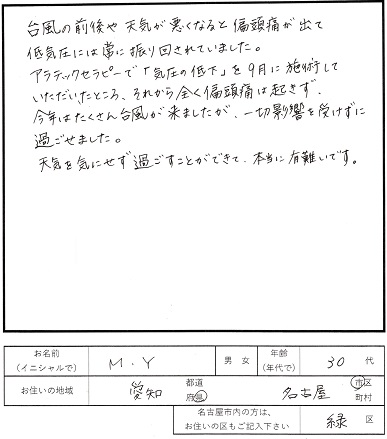 台風の前後や天気が悪くなると偏頭痛が出て
低気圧には常に振り回されていました。
アラテックセラピーで「気圧の低下」を9月に施術して
いただいたところ、それから全く偏頭痛は起きず、
今年はたくさん台風が来ましたが、一切影響を受けずに
過ごせました。
天気を気にせず過ごすことができて、本当に有難いです。
お名前
(イニシャルで) M.Y 男 女 年齢
(年代で) 30 代
お住いの地域 愛知 都道
府県 名古屋 市区
町村
名古屋市内の方は、
お住いの区もご記入下さい 緑 区